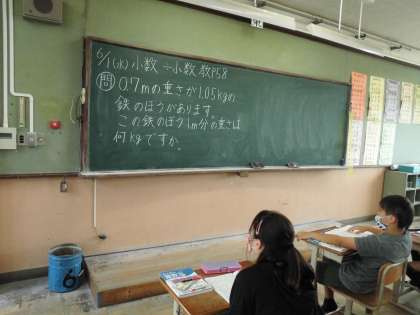 6/1(水) 小数÷小数 教P58
問 0.7mの重さが1.05kgの
鉄のぼうがあります。
この鉄のぼう1m分の重さは
何kgですか。
6